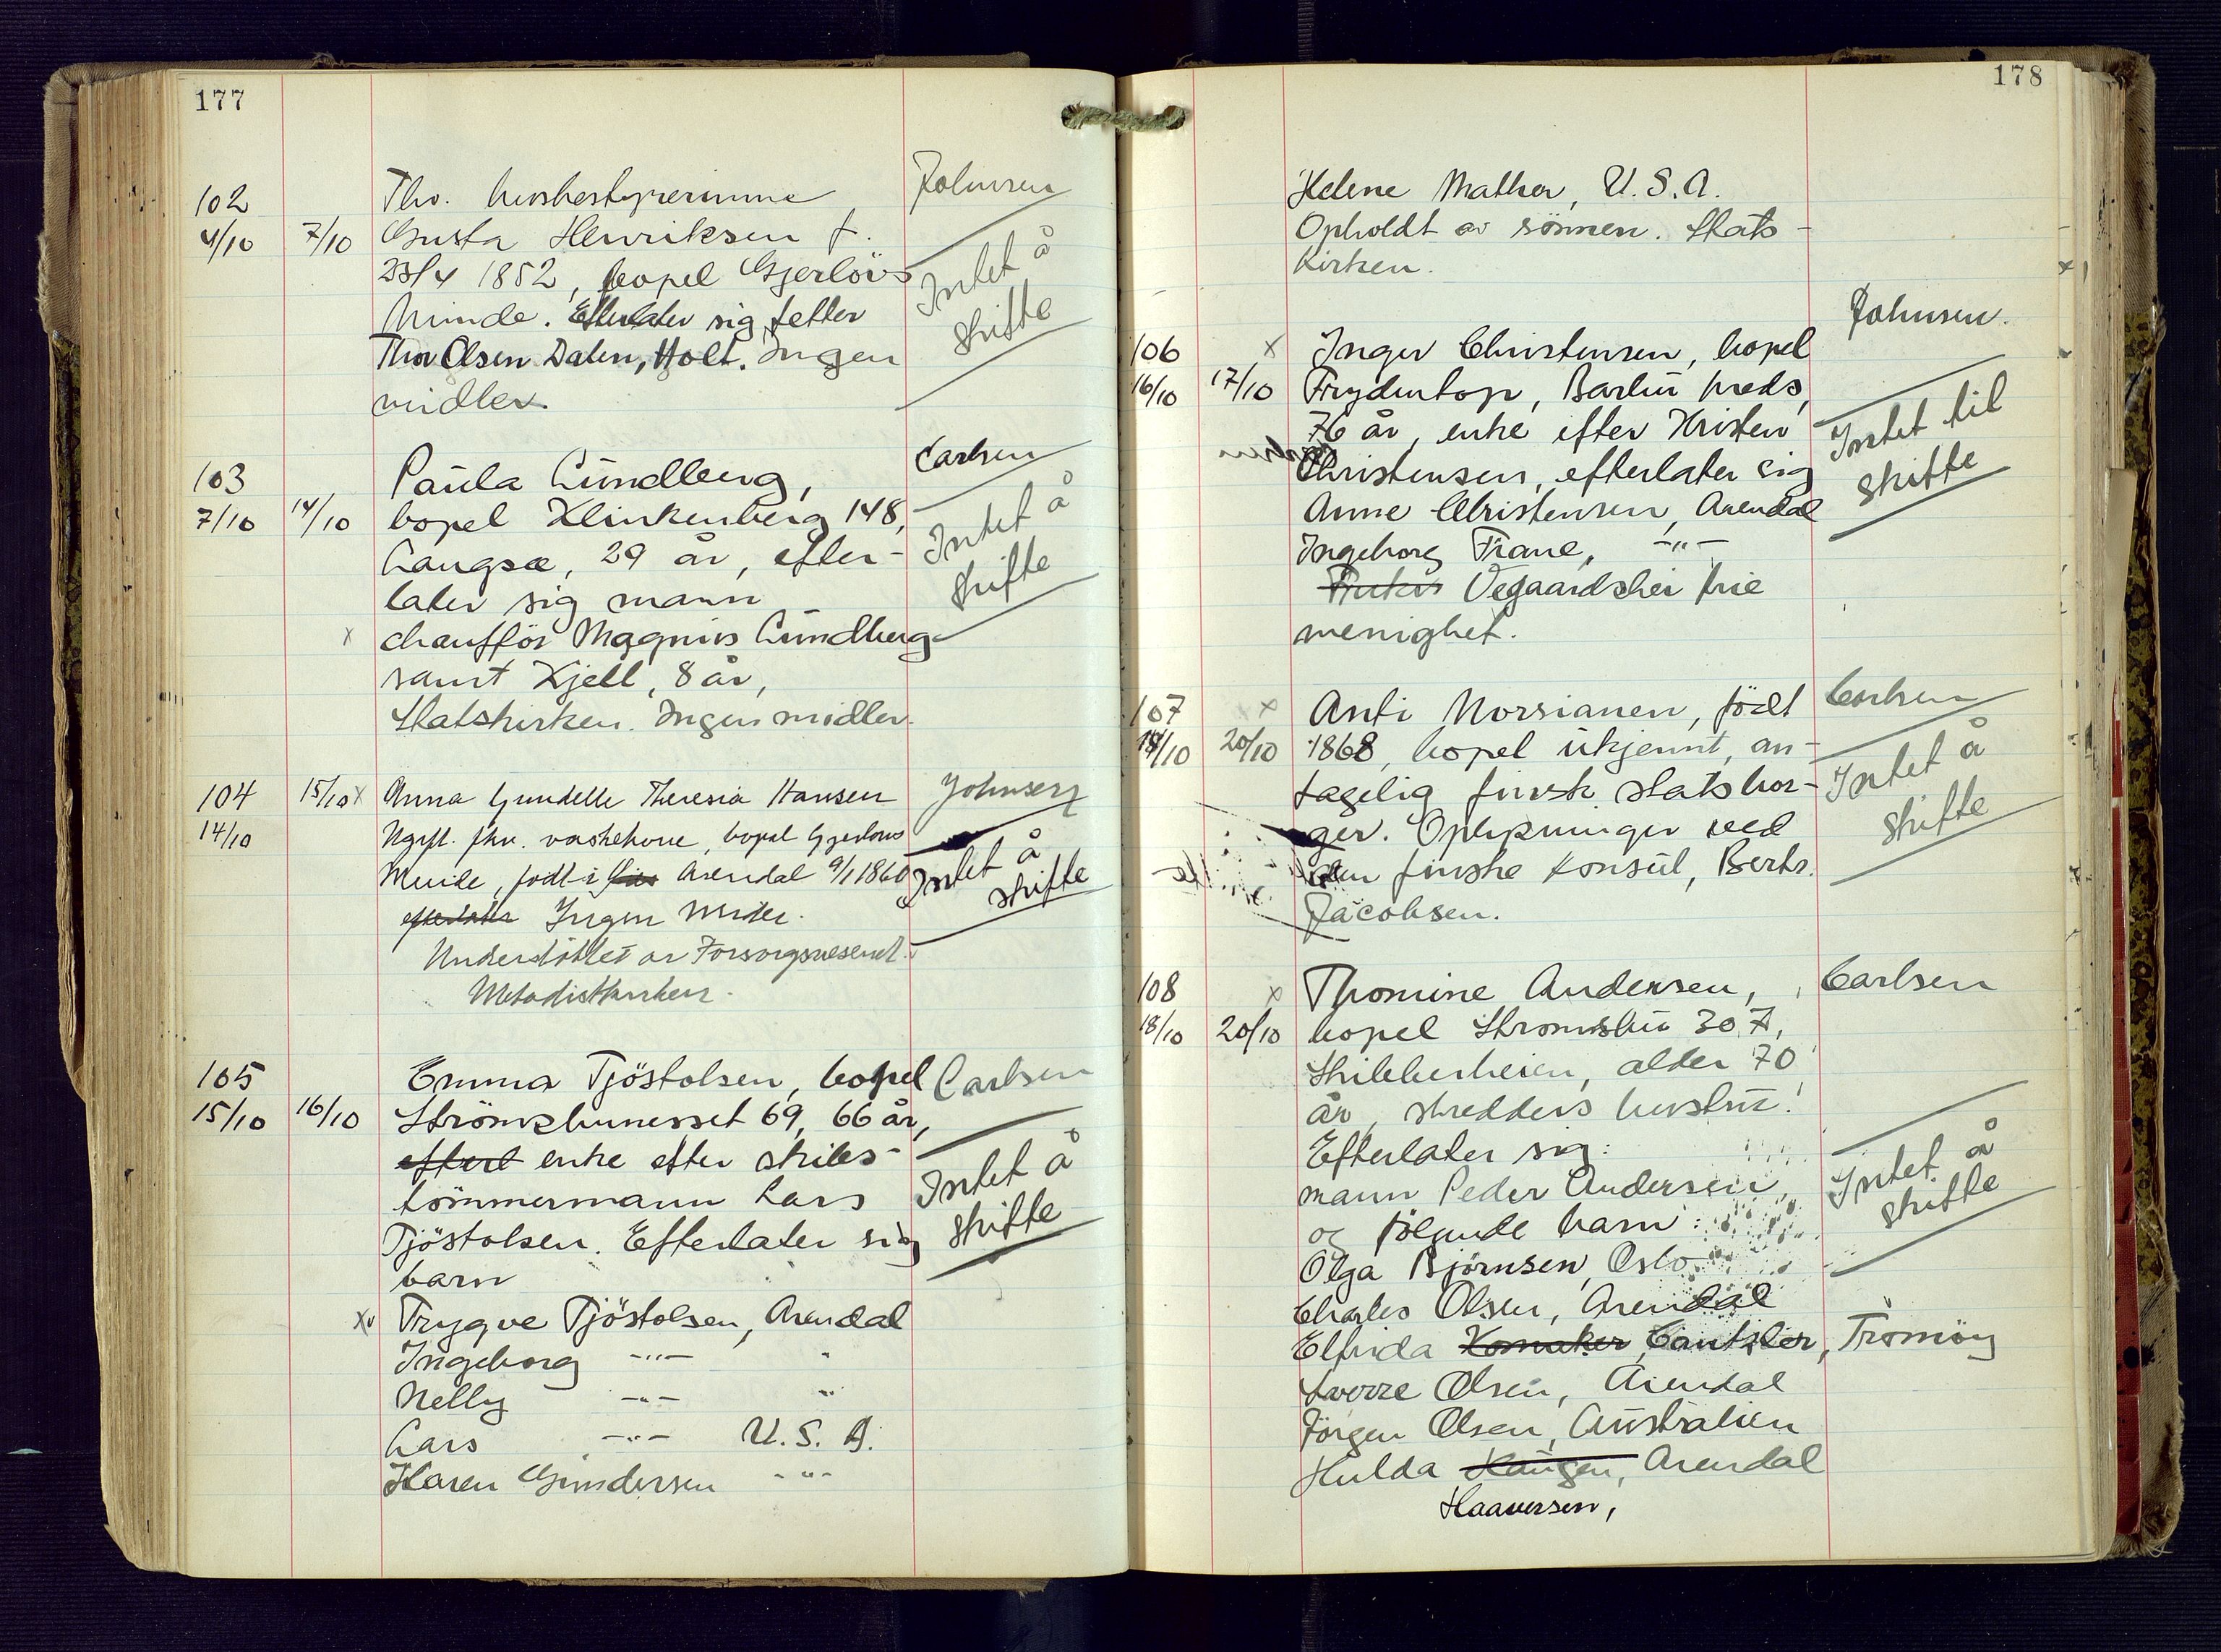 177
102
4/10 7/10
Thv. husbestyrerinne
Gusta Henriksen f.
23/4 1852, bopel Gjerlöws
Minde. Efterlater sig fetter
Thor Olsen Dalen, Holt. Ingen
midler.
Johnsen
Intet å
skifte
103
7/10 14/10
Paula Lundberg,
bopel Klinkenberg 148,
Langsæ, 29 år, efter-
later sig mann
x chafför Magnus Lundberg
samt Kjell, 8 år,
Statskirken. Ingen midler.
Carlsen
Intet å
skifte
104 15/10 x
14/10
Anna Gundelle Theresia Hansen
Ugift. fhv. vaskekone, bopel Gjerlows
Minde, født i Arendal 9/1 1860
efterlater Ingen Midler.
Understöttet av Forsorgsvesenet.
Metodistkirken.
Johnsen
Intet å
skifte
105
15/10 16/10
Emma Tjöstolsen, bopel
Strömsbunesset 69, 66 år,
efterl enke efter skibs-
tömmermann Lars
Tjöstolsen. Efterlater sig
barn
Trygve Tjöstolsen, Arendal
Ingeborg -"- "
Nelly -"- "
Lars -"- U.S.A.
Karen Gundersen -"-
Carlsen
Intet å
skifte
178
Helene Mather, U.S.A.
Opholdt av sönnen. Stats-
kirken.
106 x
16/10 17/10
Inger Christensen, bopel
Frydentop, Barbu kreds,
76 år, enke efter Kristen
Christensen, efterlater sig
Anne Christensen, Arendal
Ingeborg Trane, -"-
Vegaardshei frie
menighet.
Johnsen.
Intet til
skifte
107 x
18/10 20/10
Anti Norsianen, födt
1868, bopel ukjennt, an-
tagelig finsk statsbor-
ger. Oplysninger ved
den finske konsul, Berhs.
Jacobsen.
Carlsen
Intet å
skifte
108 x
18/10 20/10
Thomine Andersen,
bopel Strømsbu 307,
Skilleberheien, alder 70
år, skredders hustru.
Efterlater sig:
mann Peder Andersen
og fölgende barn:
Olga Bjørnsen, Oslo
Charles Olsen, Arendal
Elfrida Cantzler, Tromöy
Sverre Olsen, Arendal
Jörgen Olsen, Australien
Hulda Haugen, Arendal
Haaversen,
Carlsen
Intet å
skifte